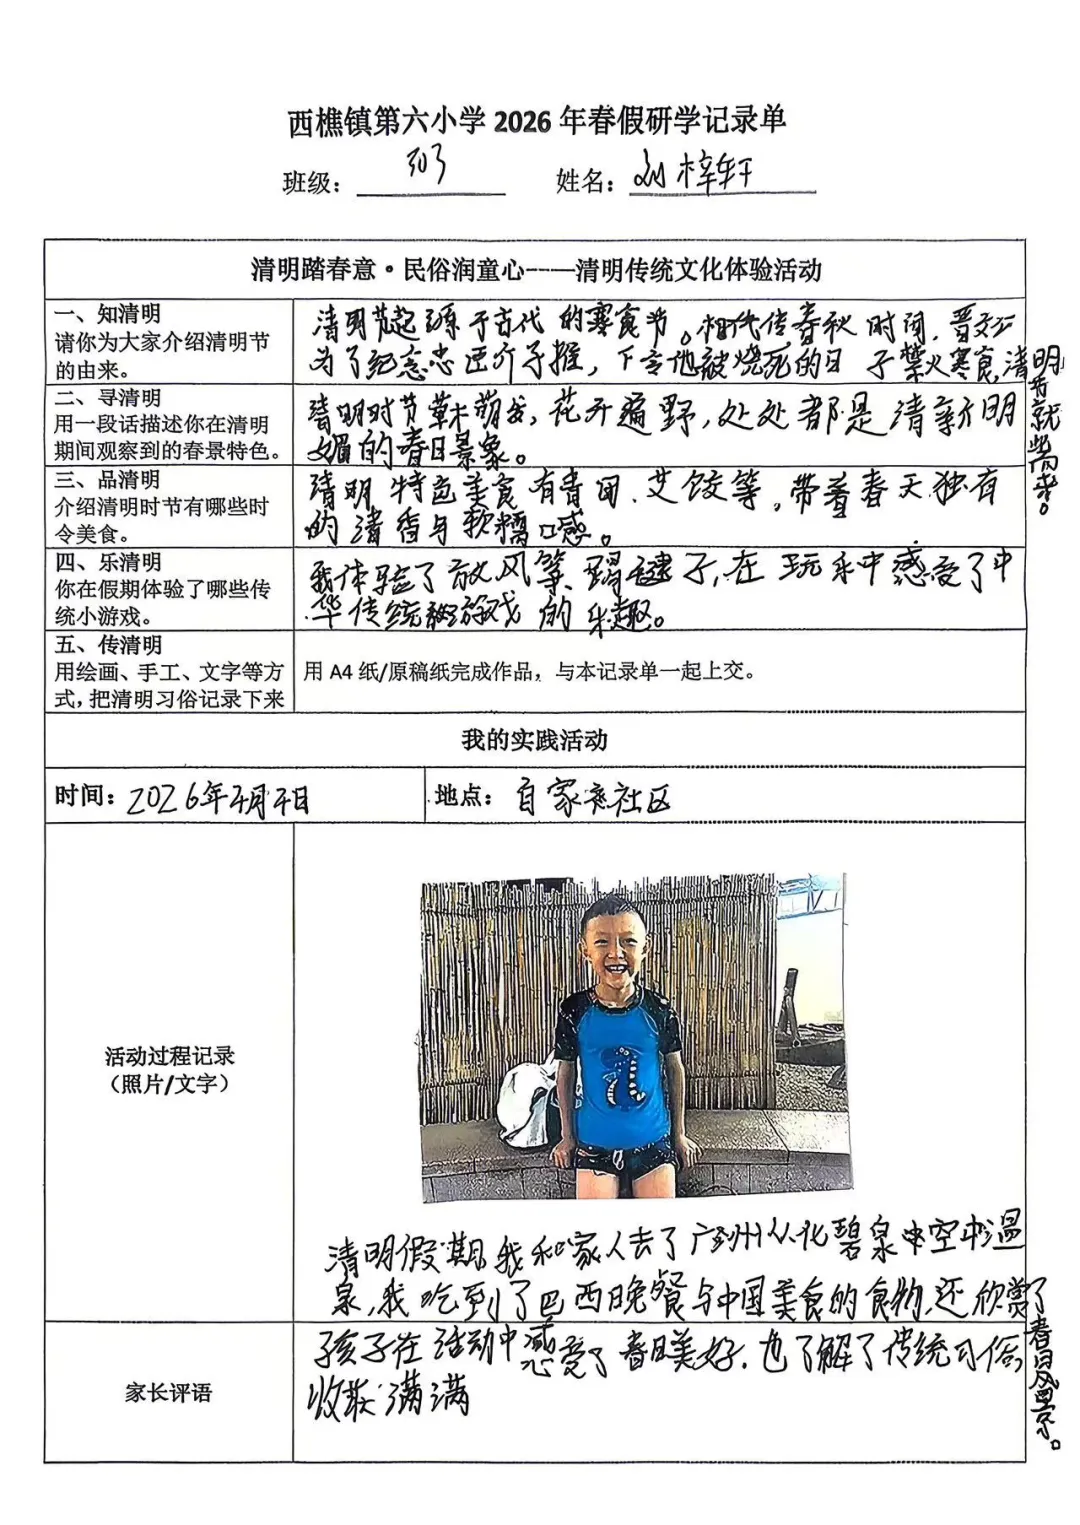 西樵镇第六小学 2026 年春假研学记录单
班级： 303 姓名： 刘梓轩
清明踏春意·民俗润童心----——清明传统文化体验活动
一、知清明
请你为大家介绍清明节
的由来。
清明节起源于古代的寒食节。相传春秋时间，晋文公
为了纪念忠臣介子推，下令他被烧死的日子禁火寒食，清明
节就
来。
二、寻清明
用一段话描述你在清明
期间观察到的春景特色。
清明时节草木萌发，花开遍野，处处都是清新明
媚的春日景象。
三、品清明
介绍清明时节有哪些时
令美食。
清明特色美食有青团、艾饺等，带着春天独有
的清香与软糯口感。
四、乐清明
你在假期体验了哪些传
统小游戏。
我体验了放风筝、踢毽子，在玩乐中感受了中
华传统游戏的乐趣。
五、传清明
用绘画、手工、文字等方
式，把清明习俗记录下来
用 A4 纸/原稿纸完成作品，与本记录单一起上交。
我的实践活动
时间：2026年4月4日
地点：自家社区
活动过程记录
（照片/文字）
清明假期我和家人去了广州从化碧泉空中温
泉，我吃到了巴西晚餐与中国美食的食物，还欣赏了
春日风景。
家长评语
孩子在活动中感受了春日美好，也了解了传统习俗，
收获满满